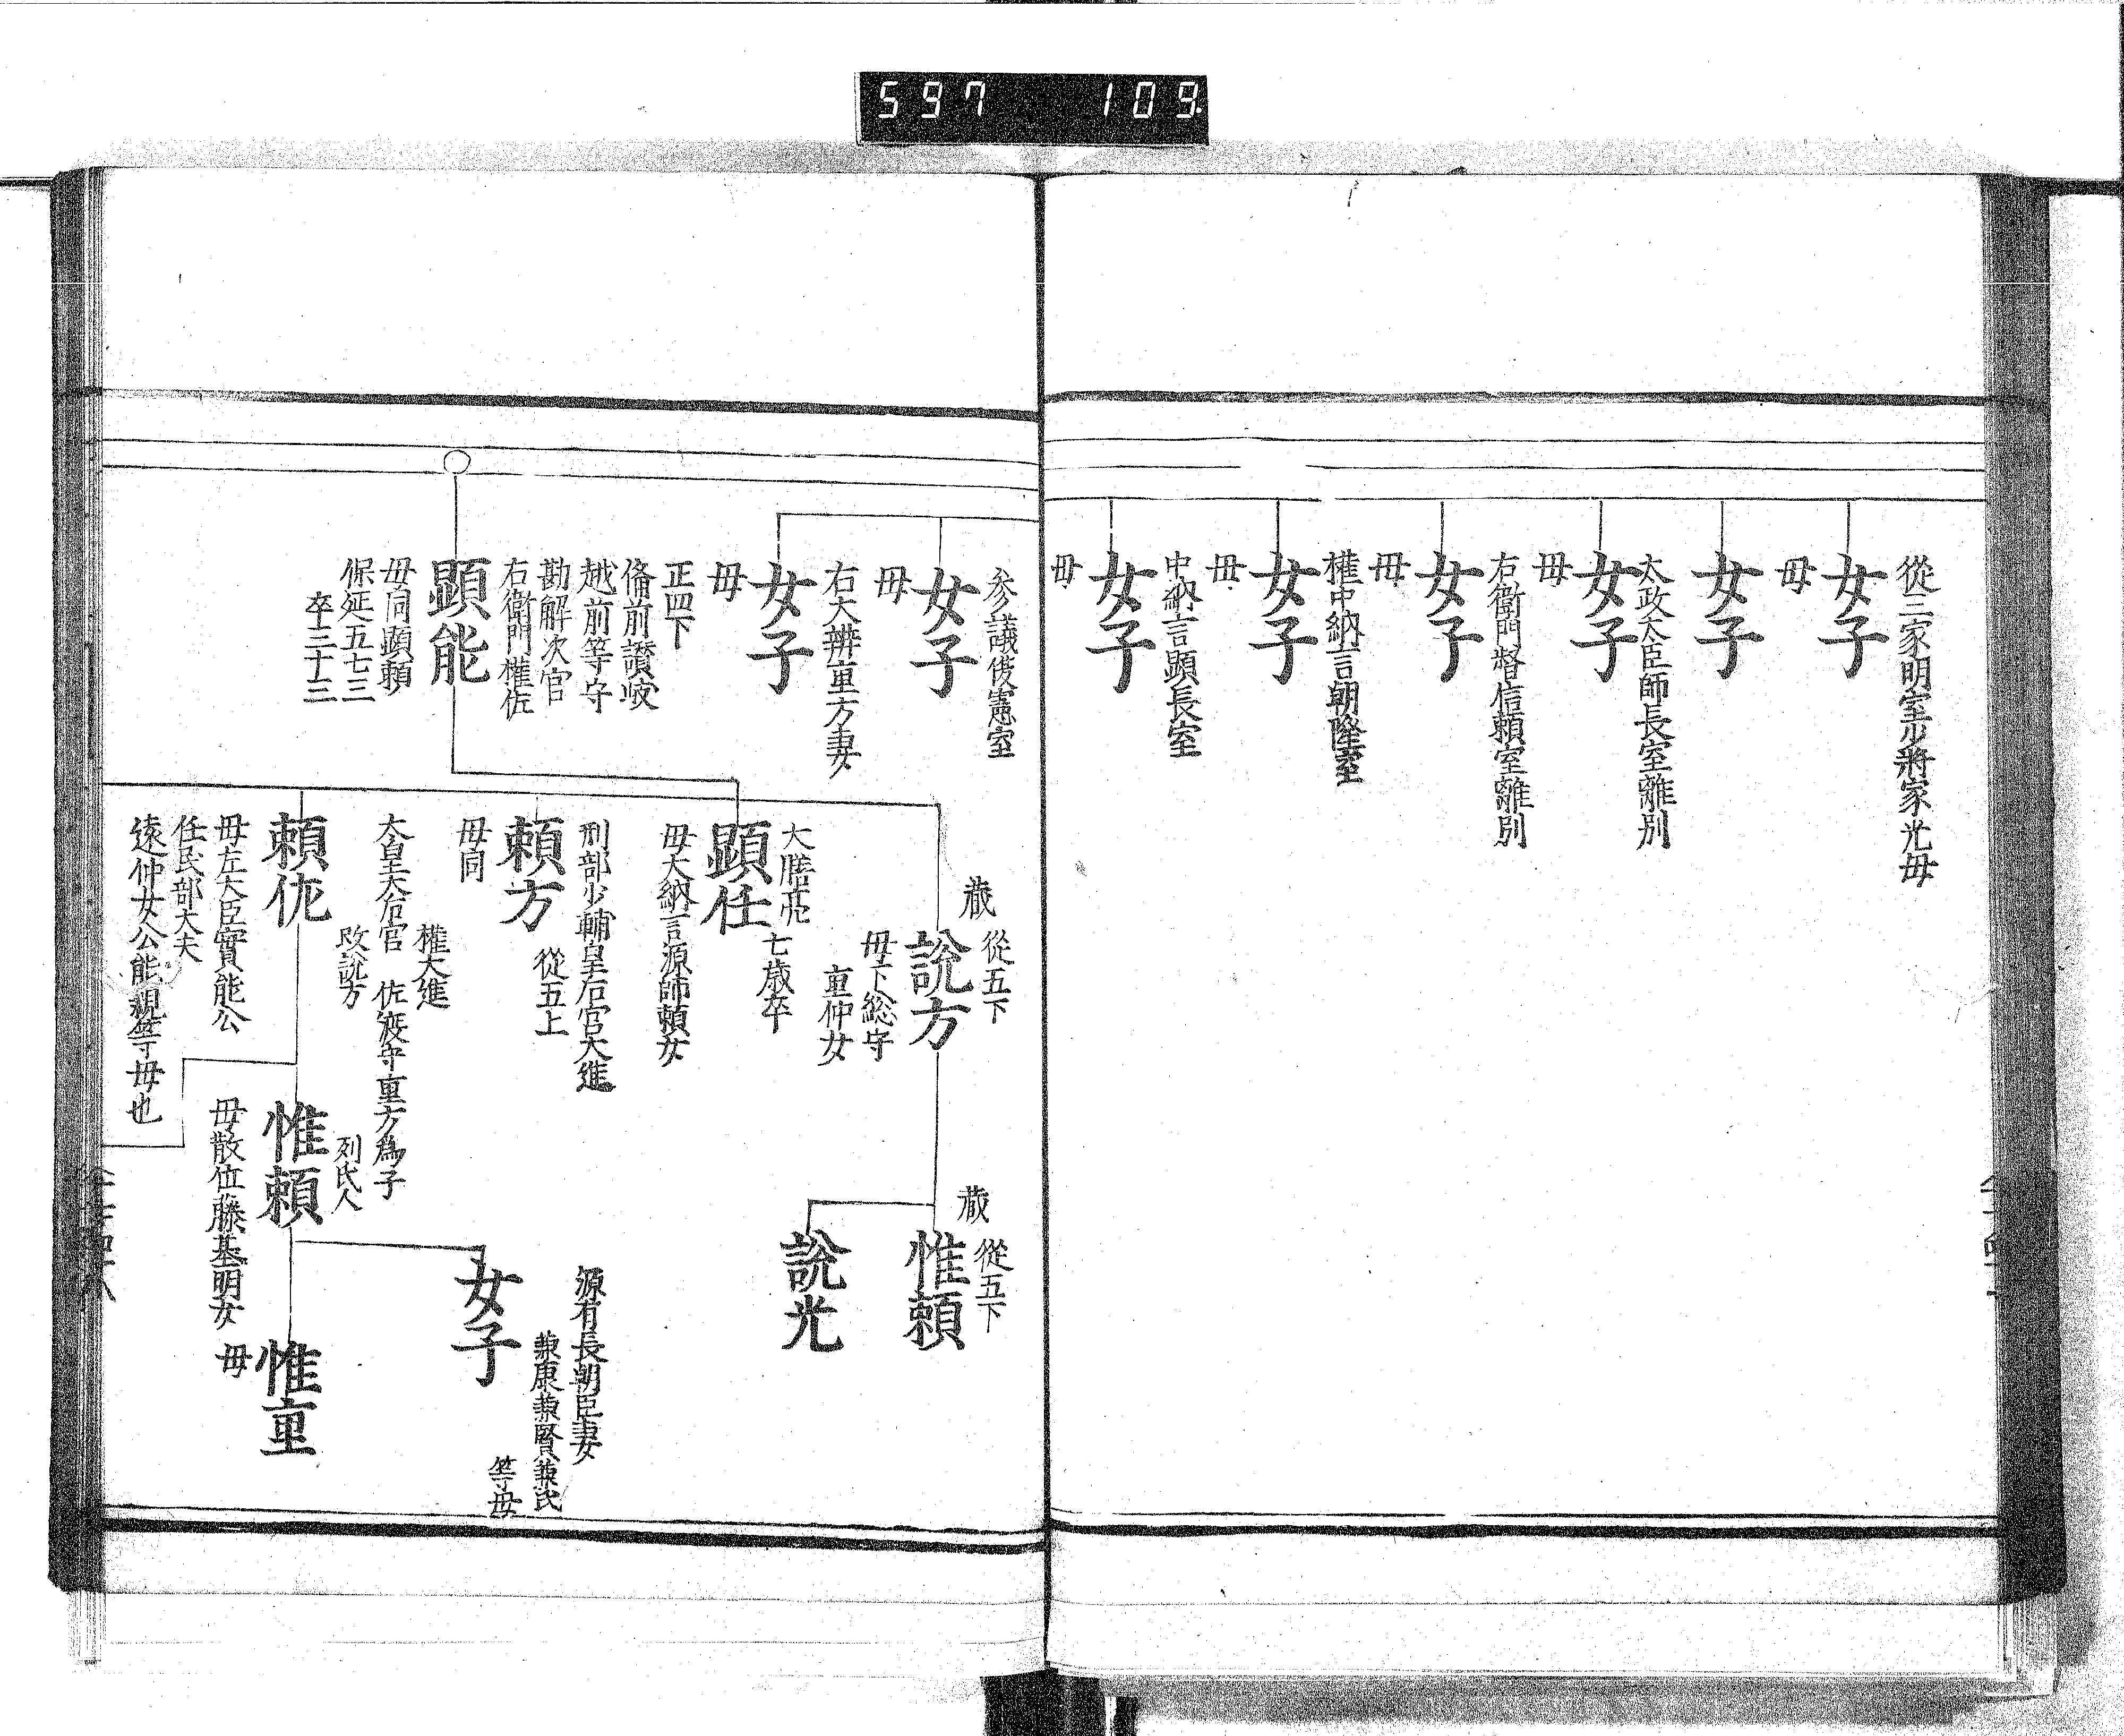 597 109
從三家明室少將家光母
女子
母
女子
太政大臣師長室離別
女子
母
右衛門督信頼室離別
女子
母
權中納言朝隆室
女子
母
中納言顯長室
女子
母
參議俊憲室
女子
母
右大辨重方妻
女子
母
正四下
備前讃岐
越前等守
勘解次官
右衛門權佐
顯能
母同顯頼
保延五七三
卒三十三
藏
從五下
說方
母下総守
重仲女
藏
從五下
惟頼
說光
大膳亮
七歳卒
顯任
母大納言源師頼女
刑部少輔皇后宮大進
從五上
頼方
母同
權大進
大皇大后宮
佐渡守重方爲子
改說方
列氏人
頼佐
母左大臣實能公
任民部大夫
遠仲女公能親等母也
惟頼
母散位藤基明女
源有長朝臣妻
兼康兼賢兼氏
等母
女子
惟重
母